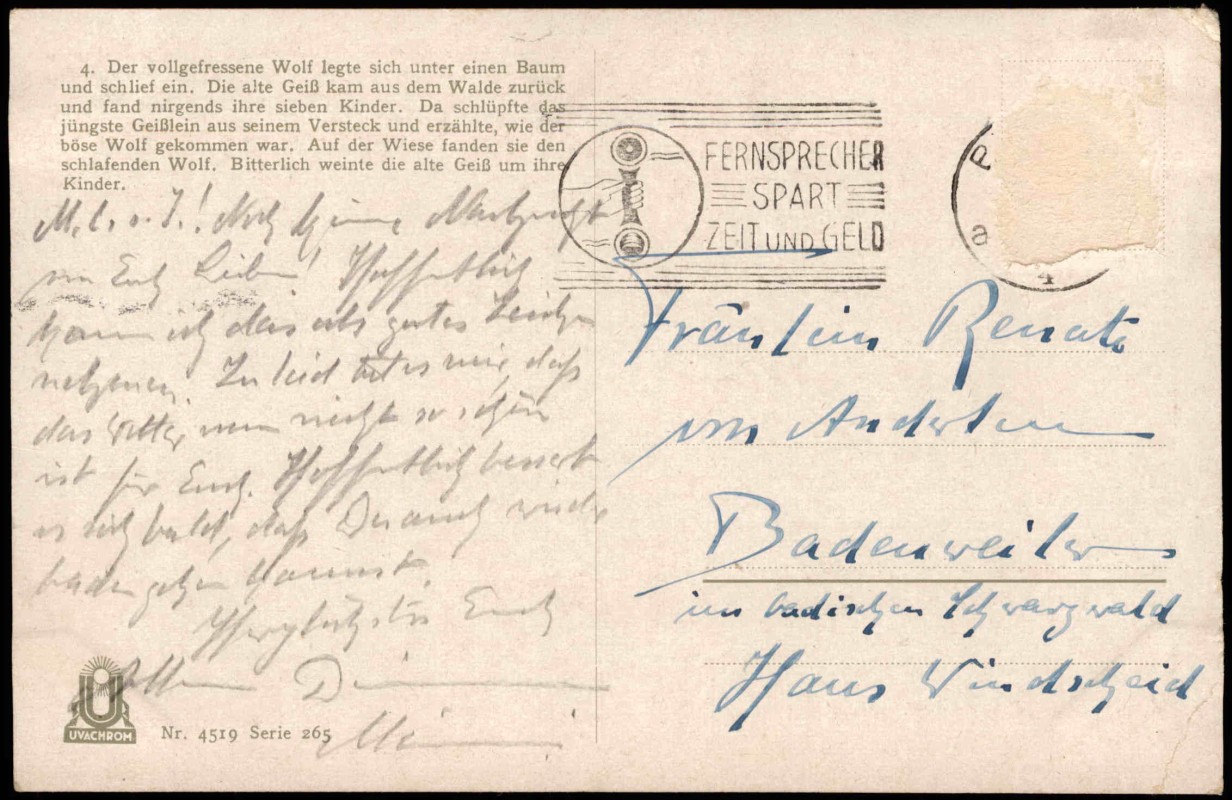 4. Der vollgefressene Wolf legte sich unter einen Baum
und schlief ein. Die alte Geiß kam aus dem Walde zurück
und fand nirgends ihre sieben Kinder. Da schlüpfte das
jüngste Geißlein aus seinem Versteck und erzählte, wie der
böse Wolf gekommen war. Auf der Wiese fanden sie den
schlafenden Wolf. Bitterlich weinte die alte Geiß um ihre
Kinder.
Noch keine Nachricht
von Euch Lieben! Hoffentlich
kann ich das als gutes Zeichen
nehmen. Zu leid tut es mir, daß
das Wetter nun nicht so schön
ist für Euch. Hoffentlich bessert
es sich bald, daß Du auch wieder
baden gehen kannst.
Herzlichst Euch
Allen
UVACHROM
Nr. 4519 Serie 265
FERNSPRECHER
SPART
ZEIT UND GELD
P
a
4
Fräulein Renate
von Anderten
Badenweiler
im badischen Schwarzwald
Haus Windscheid